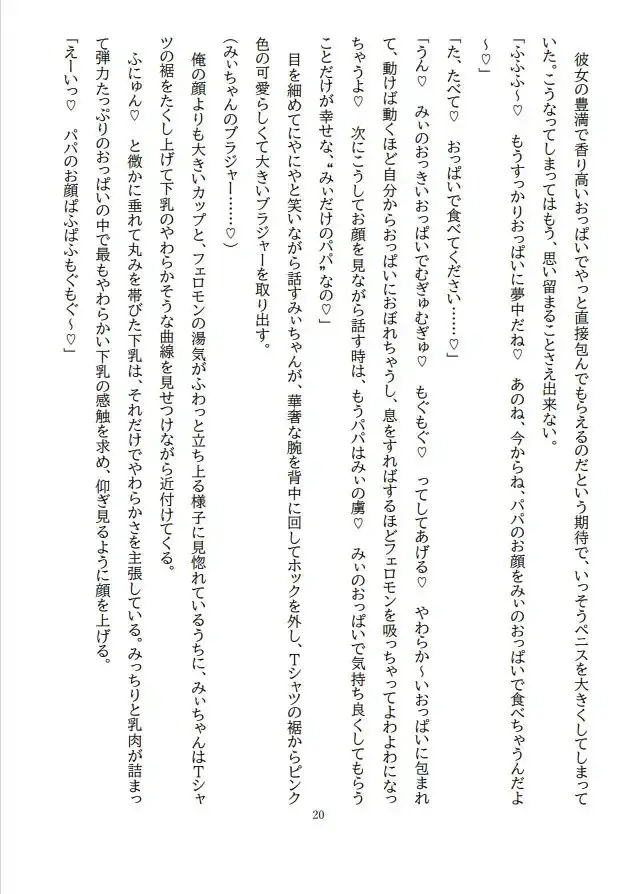 彼女の豊満で香り高いおっぱいでやっと直接包んでもらえるのだという期待で、いっそうペニスを大きくしてしまって
いた。こうなってしまってはもう、思い留まることさえ出来ない。
「ふふふ～♡　もうすっかりおっぱいに夢中だね♡　あのね、今からね、パパのお顔をみぃのおっぱいで食べちゃうんだよ
～♡」
「た、たべて♡　おっぱいで食べてください……♡」
「うん♡　みぃのおっきいおっぱいでむぎゅむぎゅ♡　もぐもぐ♡　ってしてあげる♡　やわらか～いおっぱいに包まれ
て、動けば動くほど自分からおっぱいにおぼれちゃうし、息をすればするほどフェロモンを吸っちゃってよわよわになっ
ちゃうよ♡　次にこうしてお顔を見ながら話す時は、もうパパはみぃの虜♡　みぃのおっぱいで気持ち良くしてもらう
ことだけが幸せな、“みぃだけのパパ”なの♡」
目を細めてにやにやと笑いながら話すみぃちゃんが、華奢な腕を背中に回してホックを外し、Ｔシャツの裾からピンク
色の可愛らしくて大きいブラジャーを取り出す。
（みぃちゃんのブラジャー……♡）
俺の顔よりも大きいカップと、フェロモンの湯気がふわっと立ち上る様子に見惚れているうちに、みぃちゃんはＴシャ
ツの裾をたくし上げて下乳のやわらかそうな曲線を見せつけながら近付けてくる。
ふにゅん♡　と微かに垂れて丸みを帯びた下乳は、それだけでやわらかさを主張している。みっちりと乳肉が詰まっ
て弾力たっぷりのおっぱいの中で最もやわらかい下乳の感触を求め、仰ぎ見るように顔を上げる。
「えーいっ♡　パパのお顔ぱふぱふもぐもぐ～♡」
20